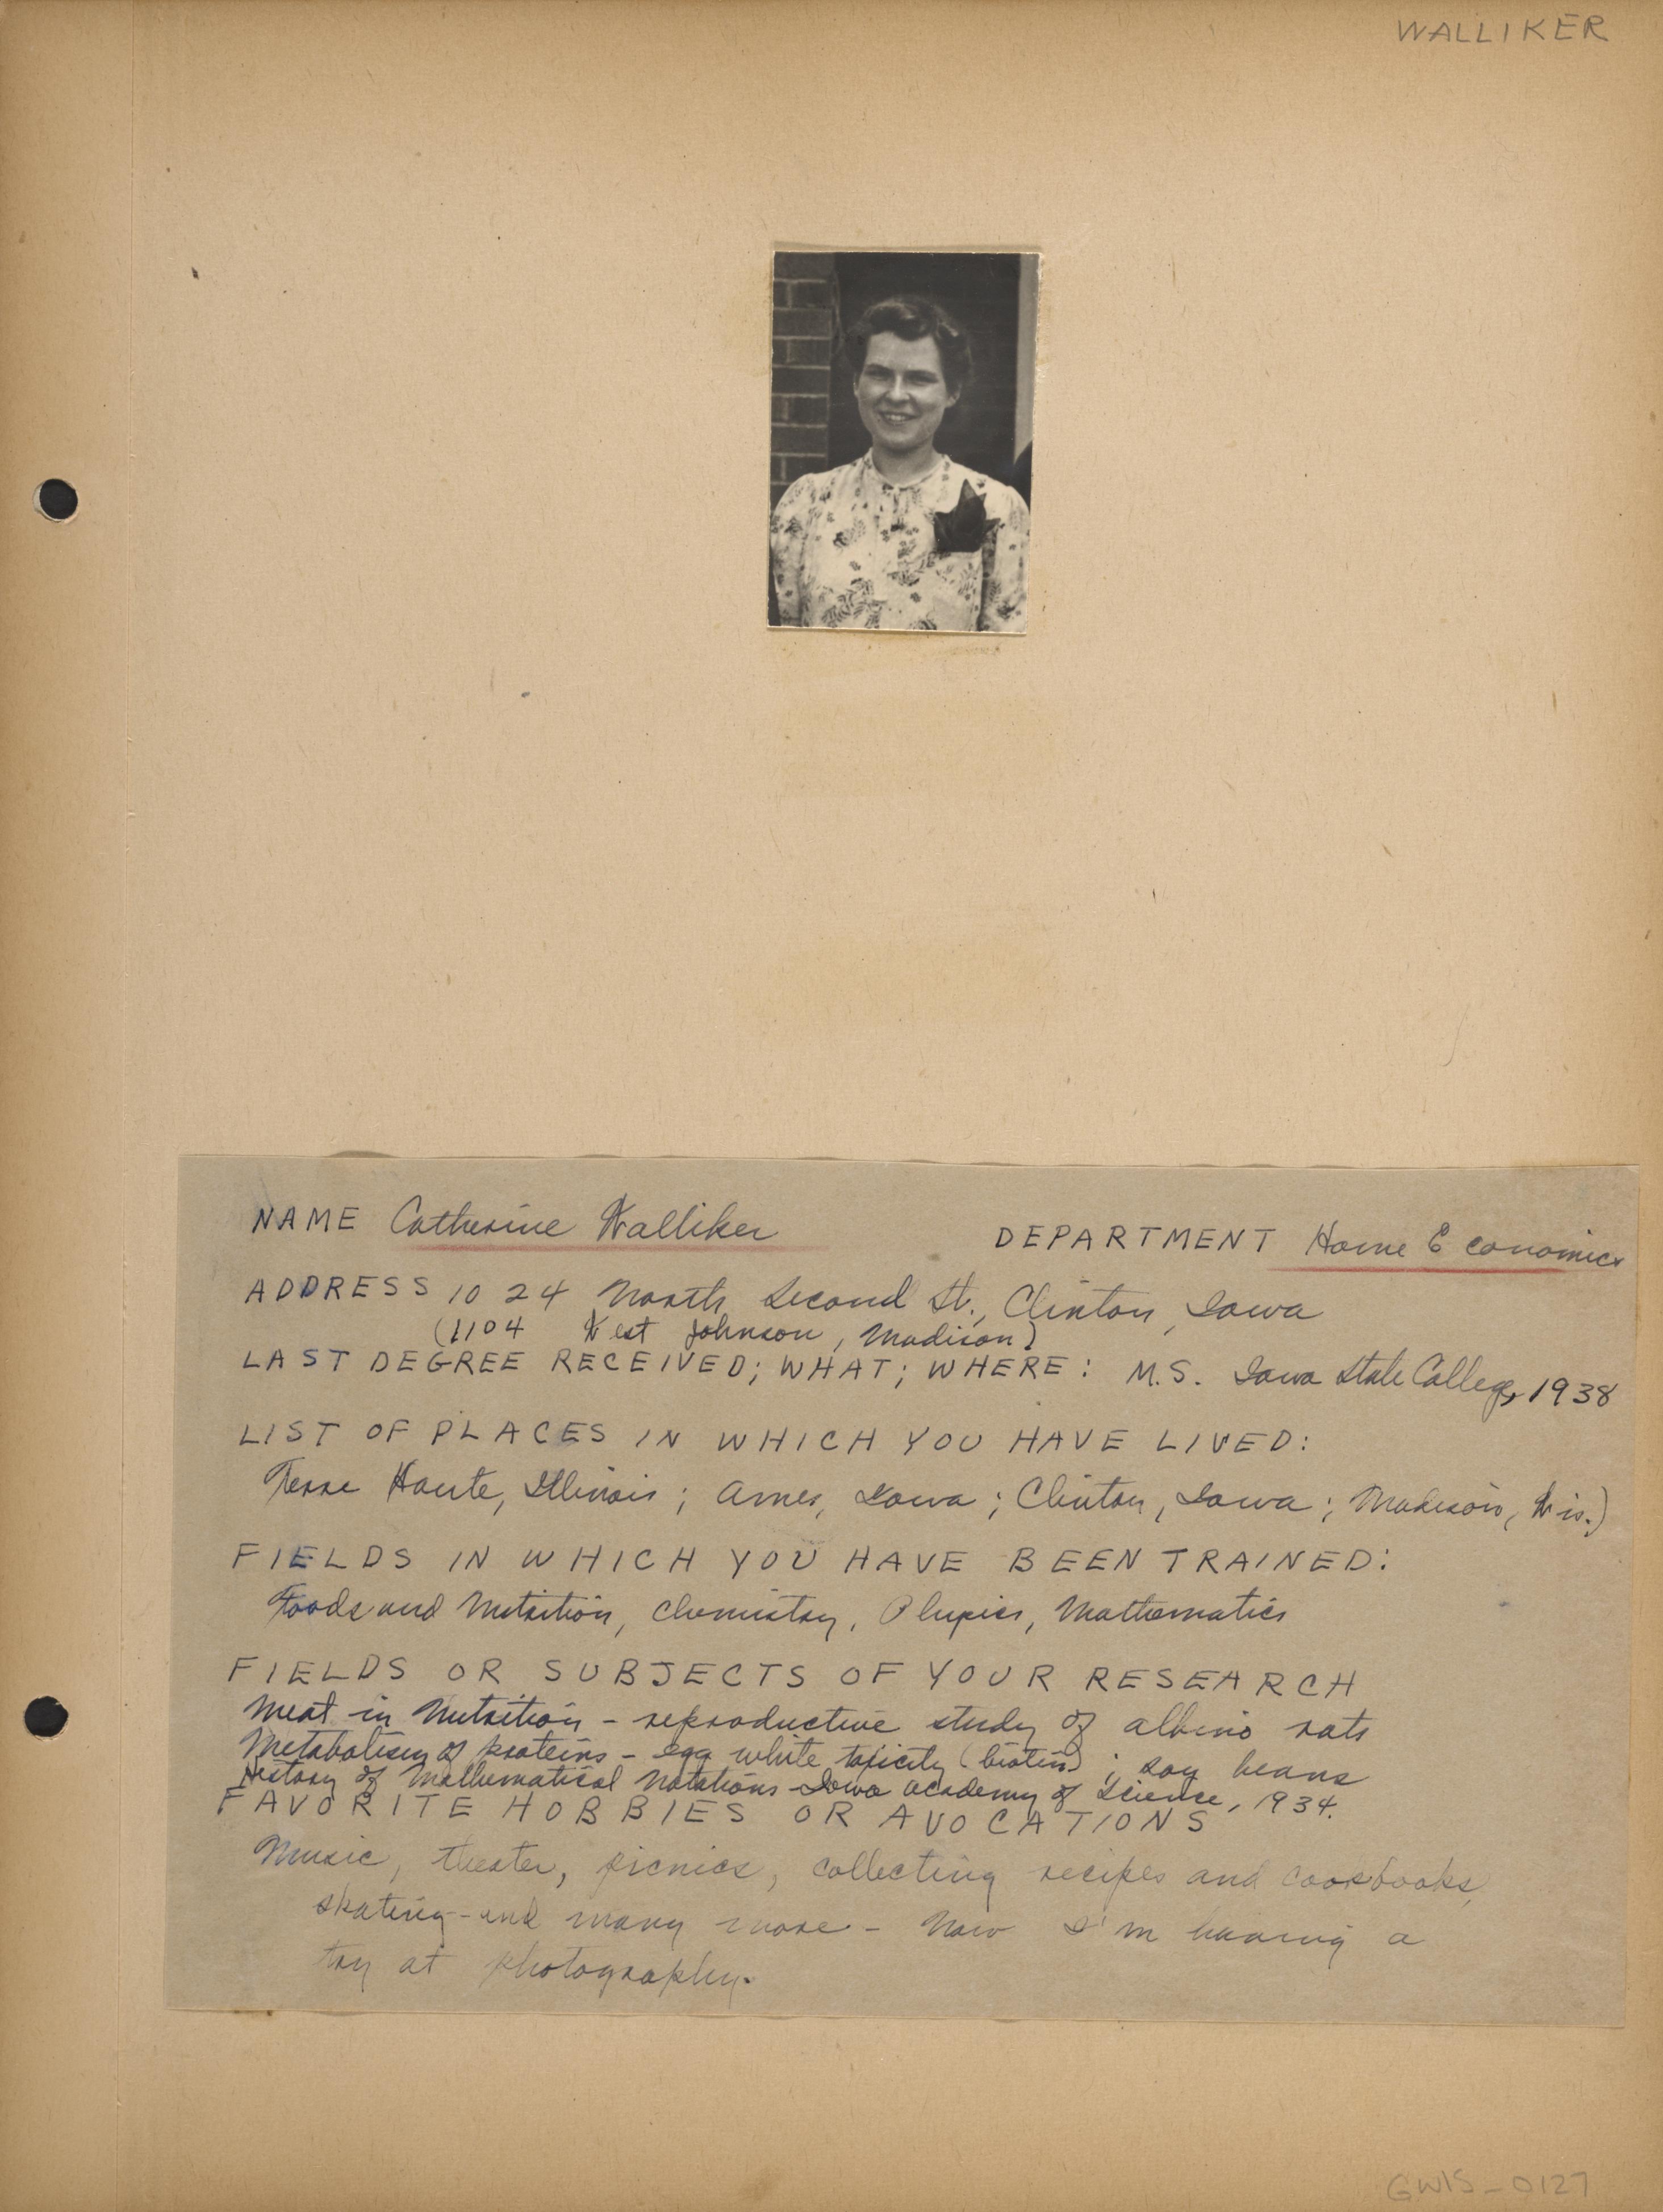 WALLIKER
NAME Catherine Walliker DEPARTMENT Home Economics
ADDRESS 1024 North Second St., Clinton, Iowa
(1104 West Johnson, Madison)
LAST DEGREE RECEIVED; WHAT; WHERE: M.S. Iowa State College, 1938
LIST OF PLACES IN WHICH YOU HAVE LIVED:
Terre Haute, Illinois; Ames, Iowa; Clinton, Iowa; Madison, Wis.)
FIELDS IN WHICH YOU HAVE BEEN TRAINED:
Foods and Nutrition, Chemistry, Physics, Mathematics
FIELDS OR SUBJECTS OF YOUR RESEARCH
Meat in Nutrition - reproductive study of albino rats
Metabolism of proteins - egg white toxicity (biotin); soy beans
History of Mathematical Notations - Iowa Academy of Science, 1934.
FAVORITE HOBBIES OR AVOCATIONS
Music, theater, picnics, collecting recipes and cookbooks,
skating - and many more - Now I'm having a
try at photography.
GWIS-0127